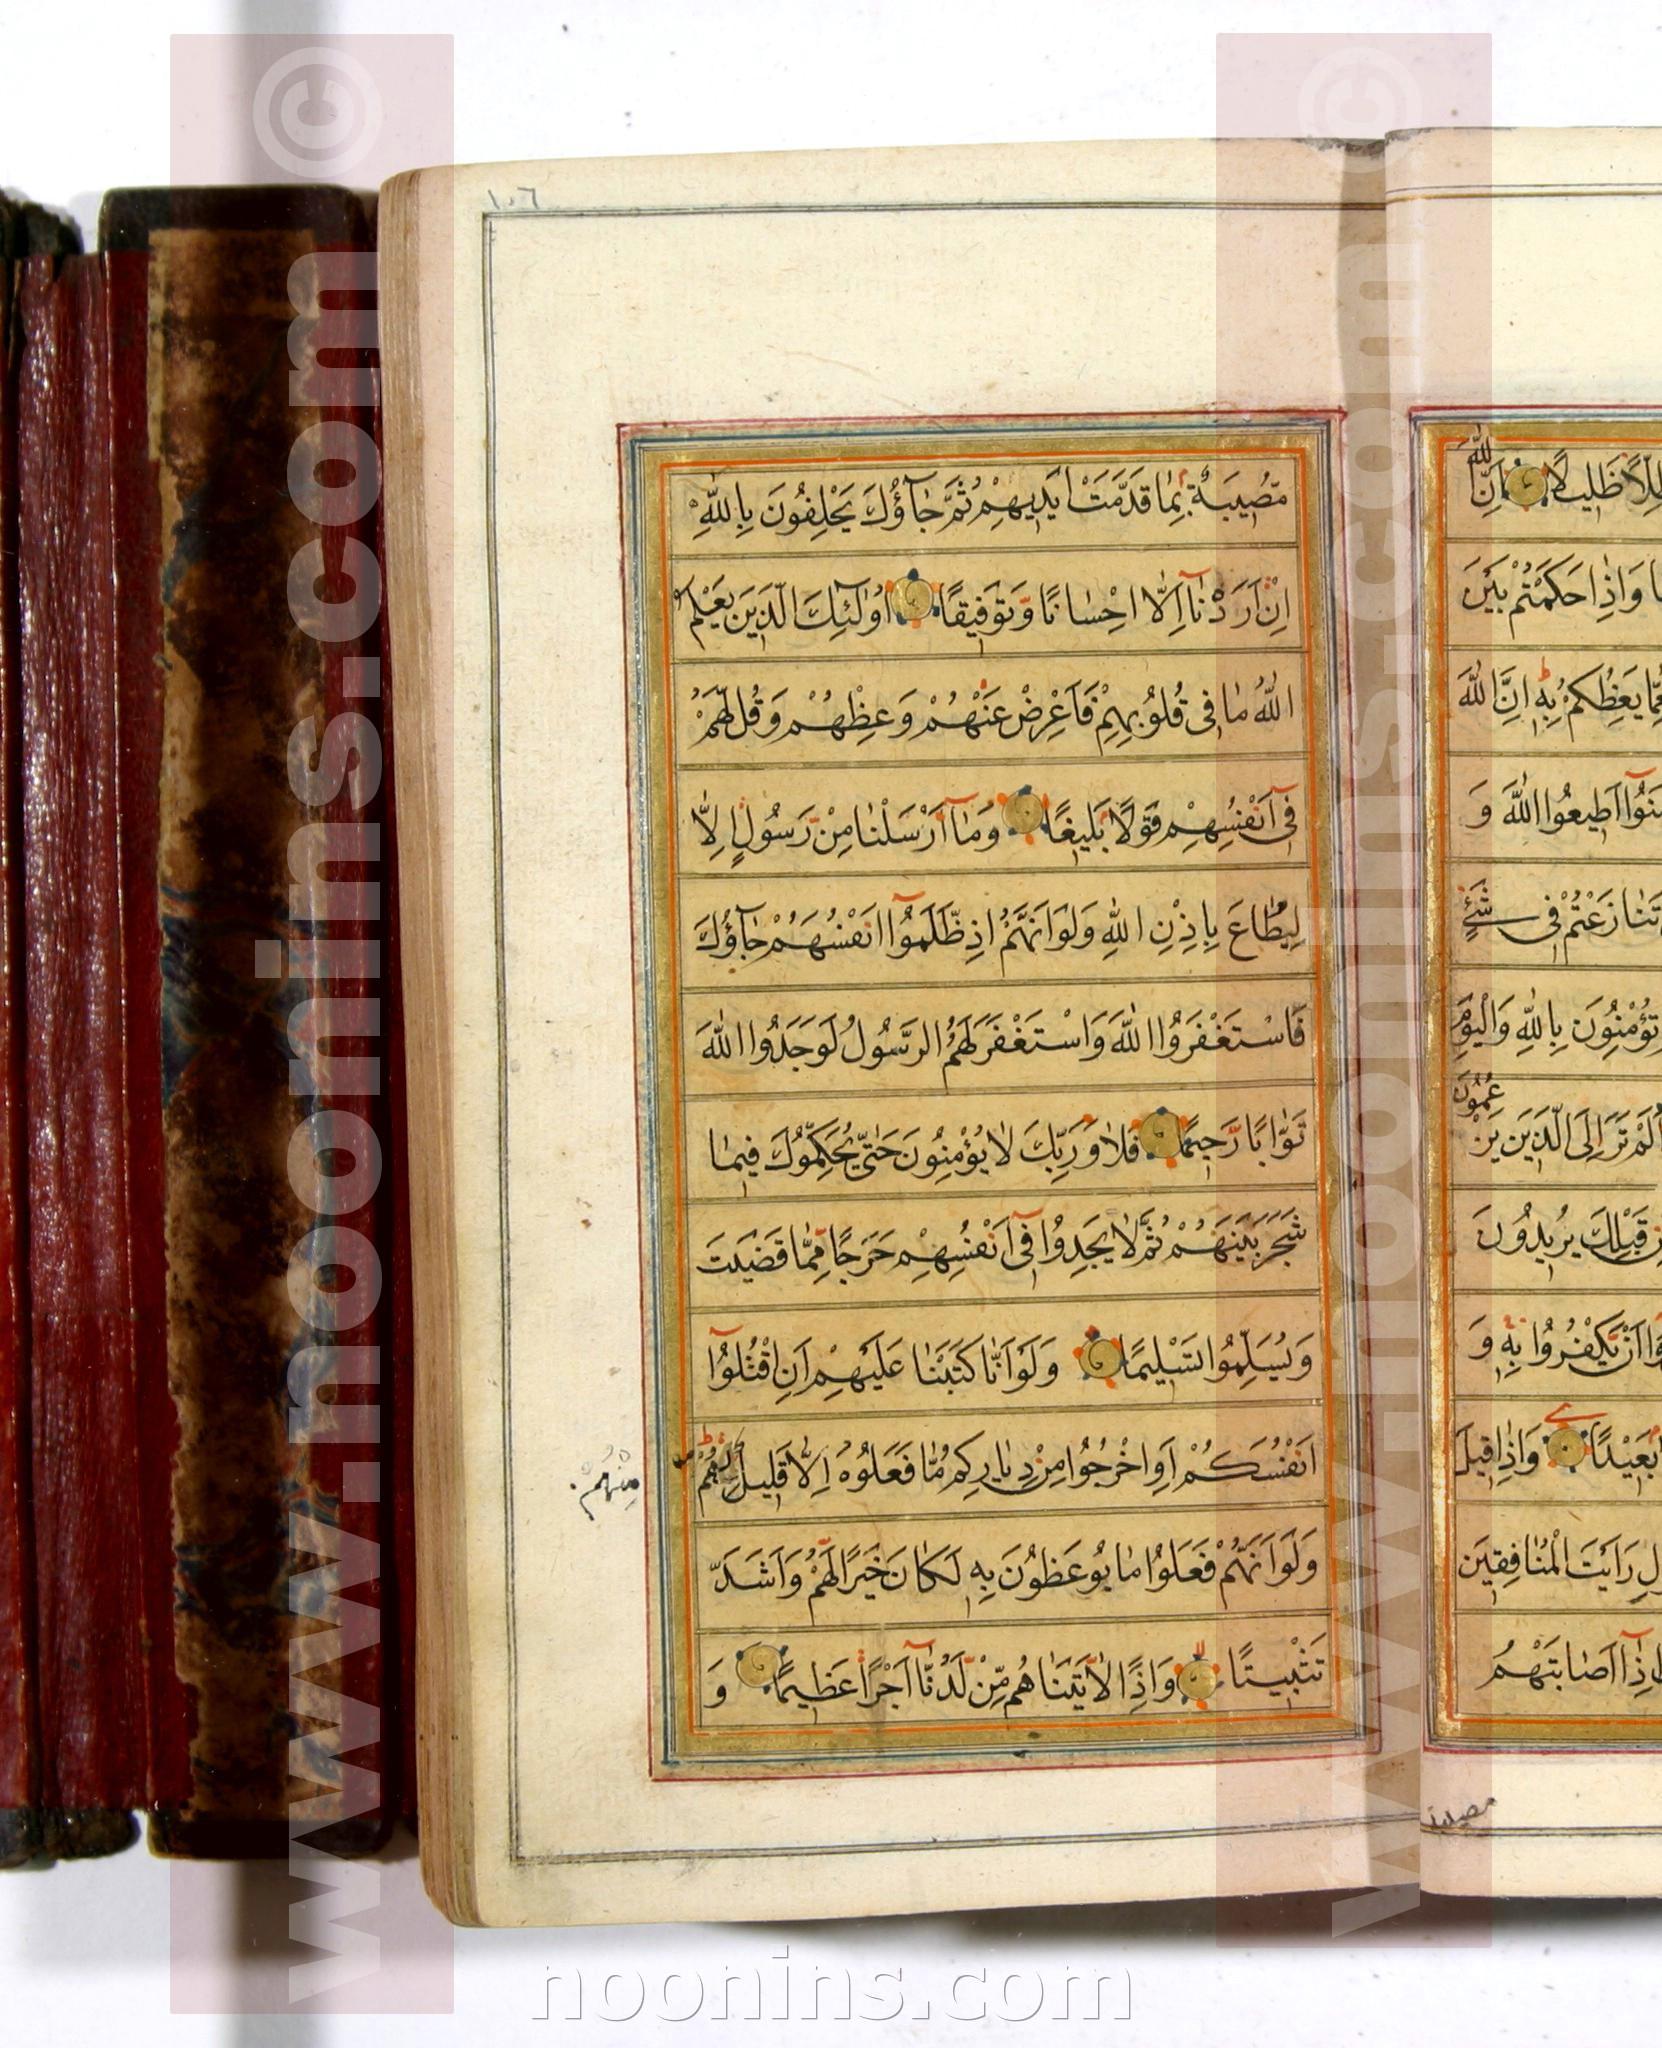 ظَلِيلًا اِنَّ اللّٰهَ
وَاِذٰا حَكَمْتُمْ بَيْنَ
يَعِظُكُمْ بِهِ اِنَّ اللّٰهَ
اَطِيعُوا اللّٰهَ وَ
تَنٰازَعْتُمْ فِي شَيْءٍ
تُؤْمِنُونَ بِاللّٰهِ وَالْيَوْمِ
اَلَمْ تَرَ اِلَى الَّذِينَ يَزْعُمُونَ
قَبْلِكَ يُرِيدُونَ
اَنْ يَكْفُرُوا بِهِ وَ
بَعِيدًا وَاِذٰا قِيلَ
رَاَيْتَ الْمُنٰافِقِينَ
اَصٰابَتْهُمْ
مصيبة
١٠٦
مُصِيبَةٌ بِمٰا قَدَّمَتْ اَيْدِيهِمْ ثُمَّ جٰآؤُكَ يَحْلِفُونَ بِاللّٰهِ
اِنْ اَرَدْنٰآ اِلَّا اِحْسٰانًا وَتَوْفِيقًا اُولٰٓئِكَ الَّذِينَ يَعْلَمُ
اللّٰهُ مٰا فِي قُلُوبِهِمْ فَاَعْرِضْ عَنْهُمْ وَعِظْهُمْ وَقُلْ لَهُمْ
فِيٓ اَنْفُسِهِمْ قَوْلًا بَلِيغًا وَمٰآ اَرْسَلْنٰا مِنْ رَسُولٍ اِلَّا
لِيُطٰاعَ بِاِذْنِ اللّٰهِ وَلَوْ اَنَّهُمْ اِذْ ظَلَمُوٓا اَنْفُسَهُمْ جٰآؤُكَ
فَاسْتَغْفَرُوا اللّٰهَ وَاسْتَغْفَرَ لَهُمُ الرَّسُولُ لَوَجَدُوا اللّٰهَ
تَوّٰابًا رَحِيمًا فَلٰا وَرَبِّكَ لٰا يُؤْمِنُونَ حَتّٰى يُحَكِّمُوكَ فِيمٰا
شَجَرَ بَيْنَهُمْ ثُمَّ لٰا يَجِدُوا فِيٓ اَنْفُسِهِمْ حَرَجًا مِمّٰا قَضَيْتَ
وَيُسَلِّمُوا تَسْلِيمًا وَلَوْ اَنّٰا كَتَبْنٰا عَلَيْهِمْ اَنِ اقْتُلُوٓا
اَنْفُسَكُمْ اَوِ اخْرُجُوا مِنْ دِيٰارِكُمْ مٰا فَعَلُوهُ اِلَّا قَلِيلٌ
مِنْهُمْ
وَلَوْ اَنَّهُمْ فَعَلُوا مٰا يُوعَظُونَ بِهِ لَكٰانَ خَيْرًا لَهُمْ وَاَشَدَّ
تَثْبِيتًا وَاِذًا لَاٰتَيْنٰاهُمْ مِنْ لَدُنّٰآ اَجْرًا عَظِيمًا وَ
© www.noonins.com
© www.noonins.com
noonins.com